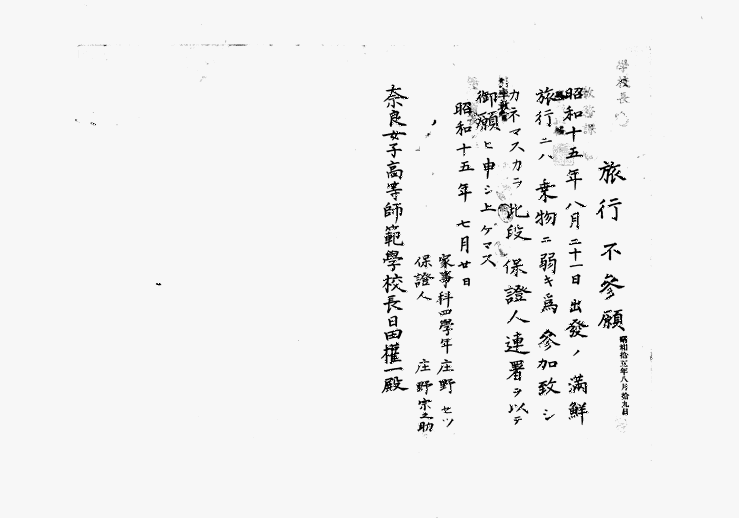 學校長
旅行不參願
昭和拾五年八月拾九日
昭和十五年八月二十一日出發ノ滿鮮
旅行ニハ乗物ニ弱キ爲參加致シ
カネマスカラ此段保證人連署ヲ以テ
御願ヒ申シ上ゲマス
昭和十五年七月廿日
家事科四學年庄野セツ
保證人庄野宗之助
奈良女子高等師範學校長日田權一殿